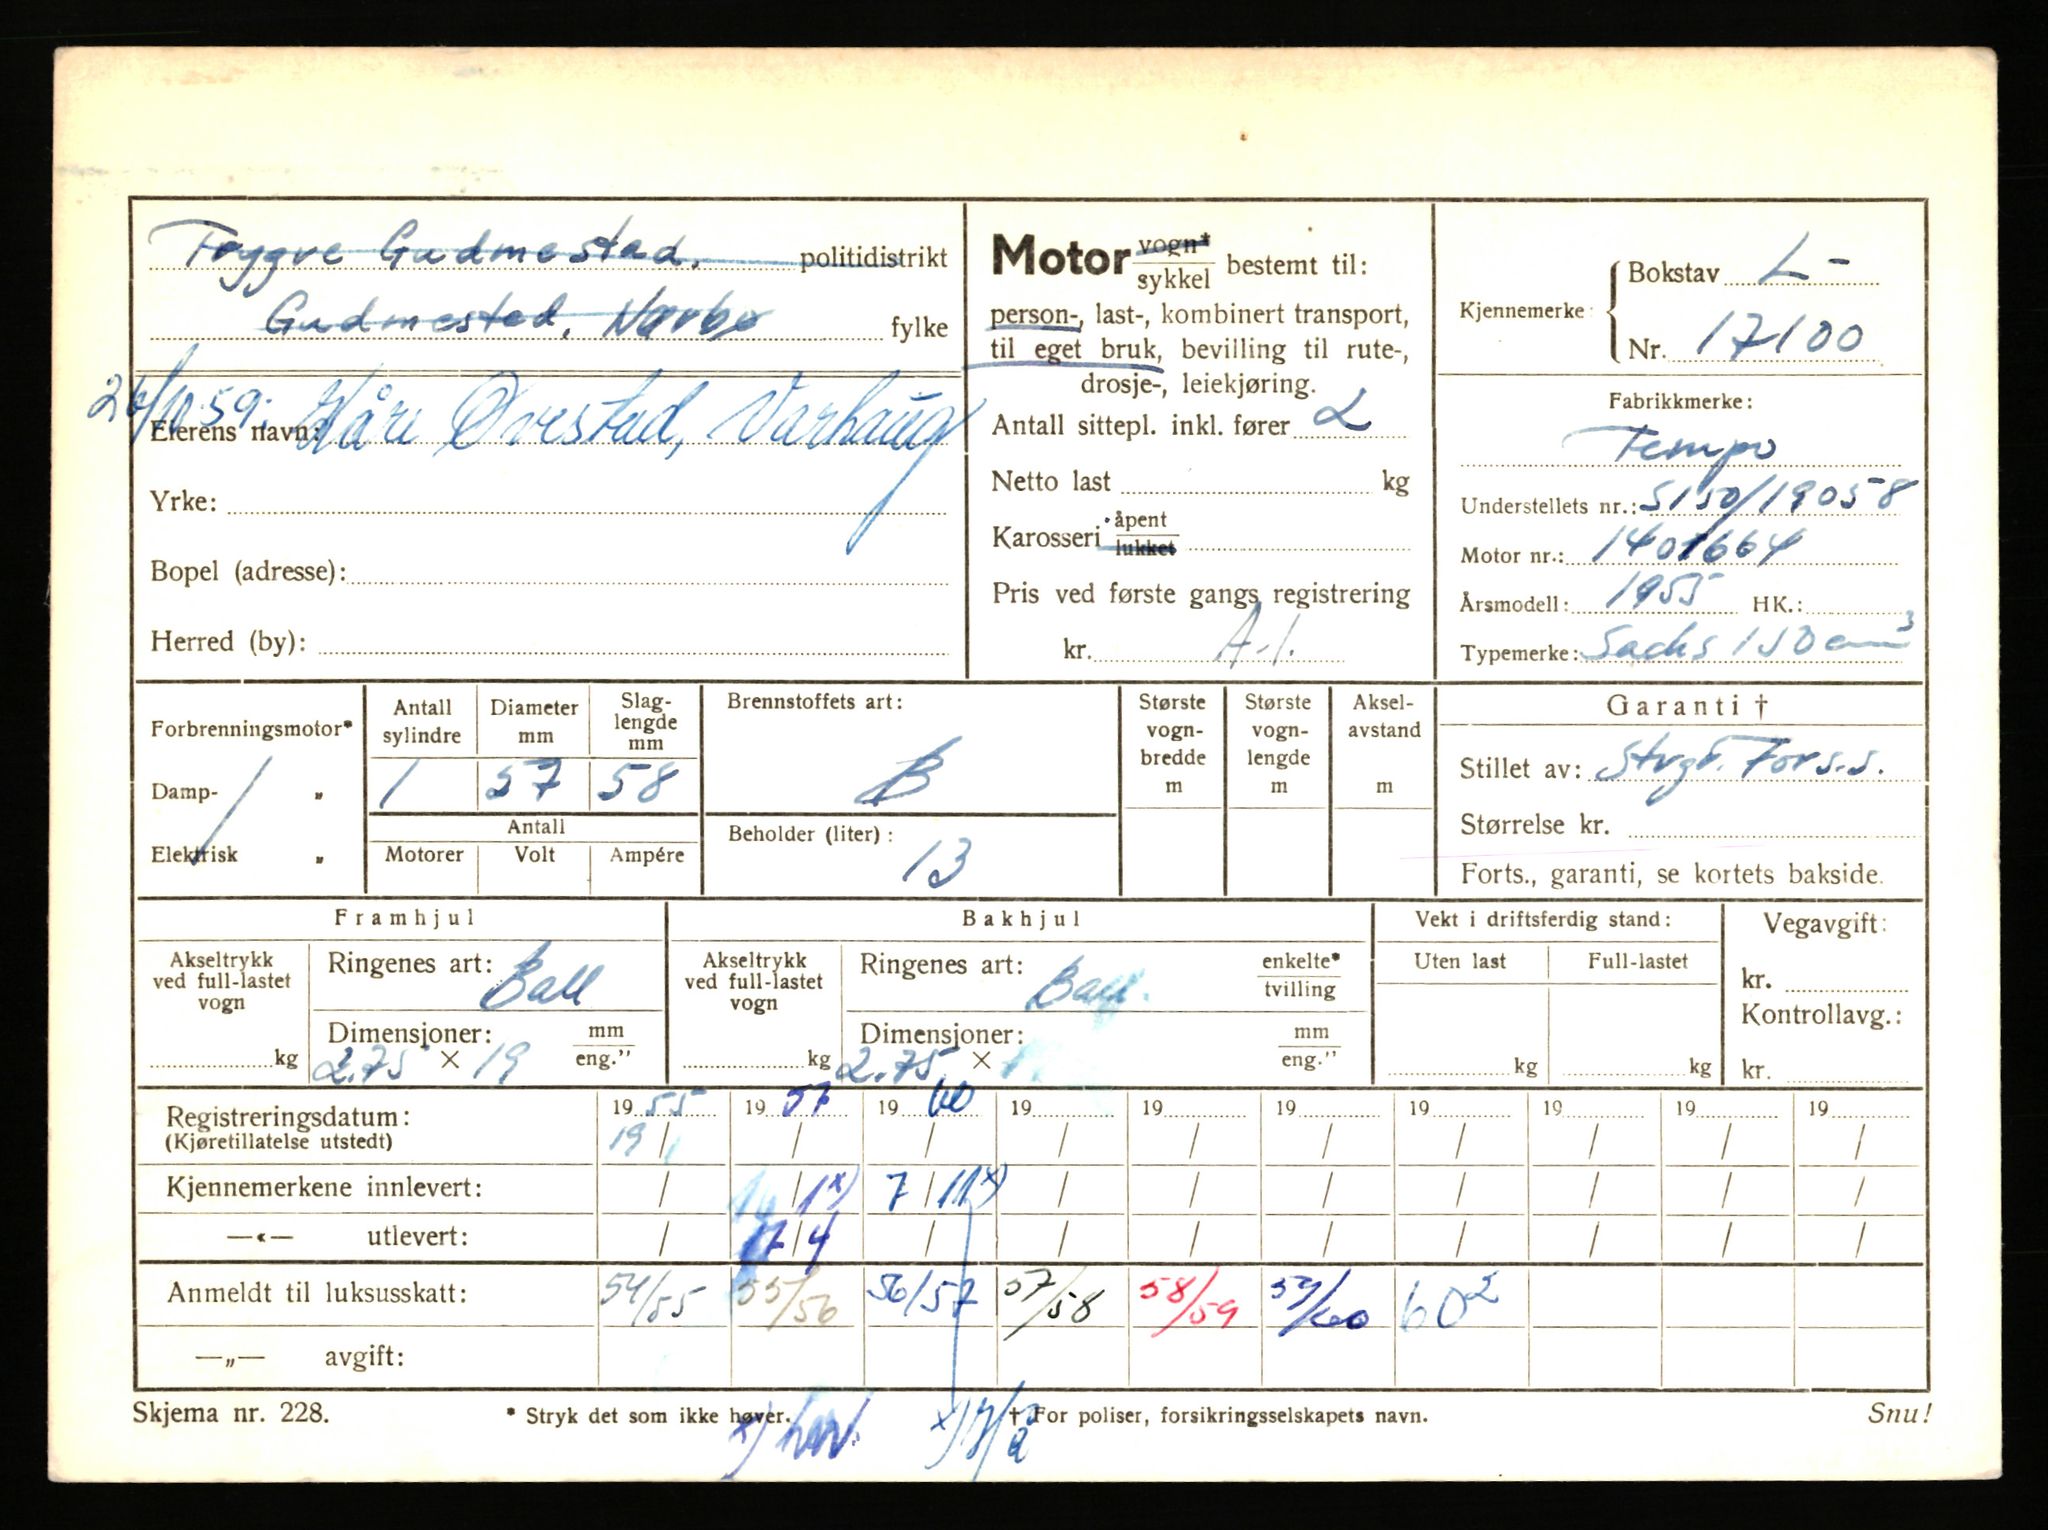 Tryggve Gudmestad. politidistrikt
Gudmestad, Nærbø fylke
26/10.59: Kåre Ovestad, Varhaug
Eierens navn:
Yrke:
Bopel (adresse):
Herred (by):
Motor vogn* / sykkel bestemt til:
person-, last-, kombinert transport,
til eget bruk, bevilling til rute-,
drosje-, leiekjøring.
Antall sittepl. inkl. fører 2
Netto last kg
Karosseri åpent / lukket
Pris ved første gangs registrering
kr. A-1.
Kjennemerke: Bokstav L-
Nr. 17100
Fabrikkmerke:
Tempo
Understellets nr.: S150/19058
Motor nr.: 1401664
Årsmodell: 1955 HK.:
Typemerke: Sachs 150 cm³
Forbrenningsmotor*
Damp- „
Elektrisk „
Antall sylindre 1
Diameter mm 57
Slag-lengde mm 58
Antall
Motorer Volt Ampére
Brennstoffets art:
B
Beholder (liter):
13
Største vogn-bredde m
Største vogn-lengde m
Aksel-avstand m
Garanti †
Stillet av: Stvgr. Fors.s.
Størrelse kr.
Forts., garanti, se kortets bakside.
Framhjul
Akseltrykk ved full-lastet vogn
kg
Ringenes art: Ball
Dimensjoner: mm / eng."
2.75 × 19
Bakhjul
Akseltrykk ved full-lastet vogn
kg
Ringenes art: Ball. enkelte* / tvilling
Dimensjoner: mm / eng."
2.75 ×
Vekt i driftsferdig stand:
Uten last Full-lastet
kg kg
Vegavgift:
kr.
Kontrollavg.:
kr.
Registreringsdatum: 1955 1957 1960 19 19 19 19 19 19 19
(Kjøretillatelse utstedt) 19/ / / / / / / / / /
Kjennemerkene innlevert: / /1x) 7/11x) / / / / / / /
—«— utlevert: / 17/4 / / / / / / / /
Anmeldt til luksusskatt: 54/55 55/56 56/57 57/58 58/59 59/60 60²
—„— avgift:
Skjema nr. 228.
* Stryk det som ikke høver.
† For poliser, forsikringsselskapets navn.
Snu!